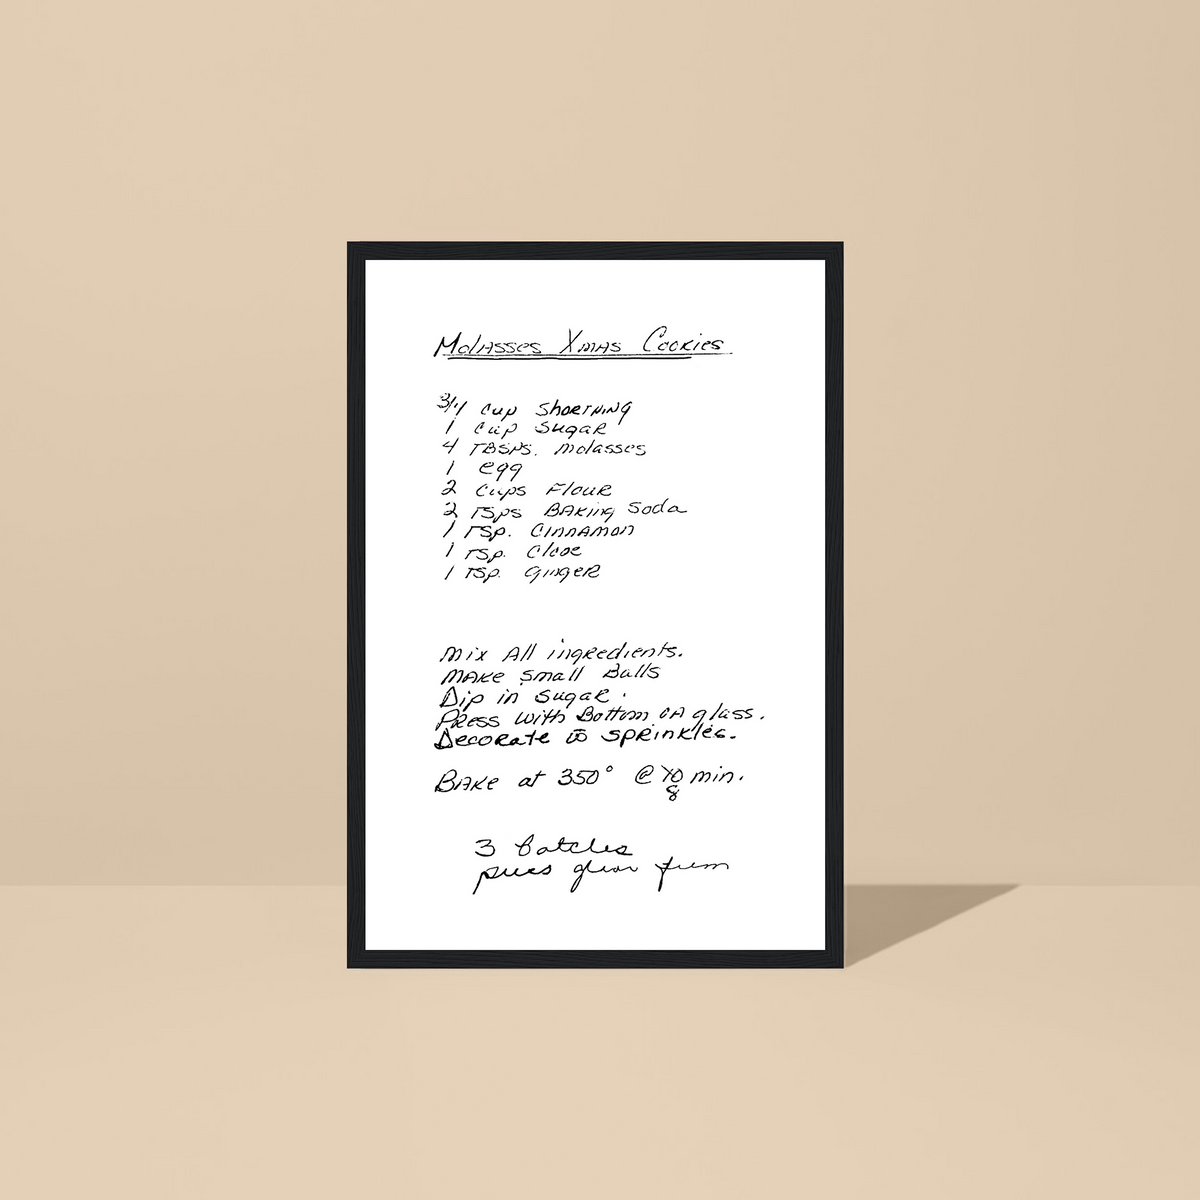 Molasses Xmas Cookies
3/4 cup Shortning
1 cup Sugar
4 TBSPS. molasses
1 egg
2 cups Flour
2 Tsps Baking Soda
1 Tsp. Cinnamon
1 Tsp. Clove
1 Tsp. Ginger
Mix All ingredients.
Make small Balls
Dip in sugar.
Press with Bottom of glass.
Decorate w sprinkles.
Bake at 350° @ 10 min.
8
3 batches